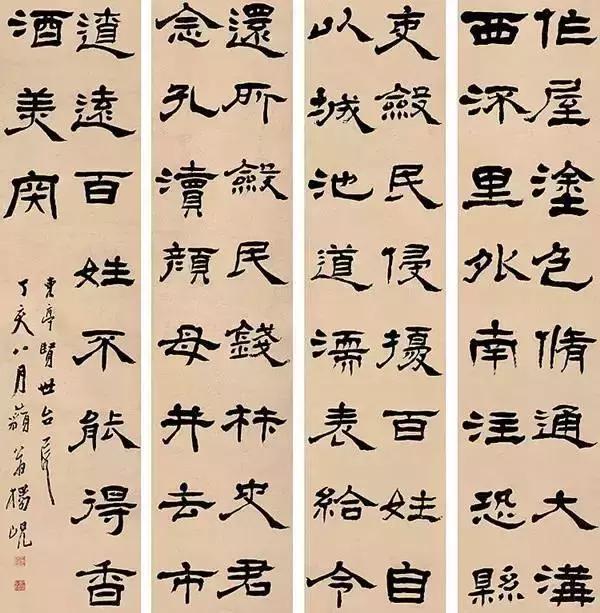 作屋塗色脩通大溝
西流里外南注恐縣
吏斂民侵擾百姓自
以城池道濡麥給令
還所斂民錢材史君
念孔瀆顏母井去市
遼遠百姓不能得香
酒美肉
東亭賢世台屬
丁亥八月藐翁楊峴